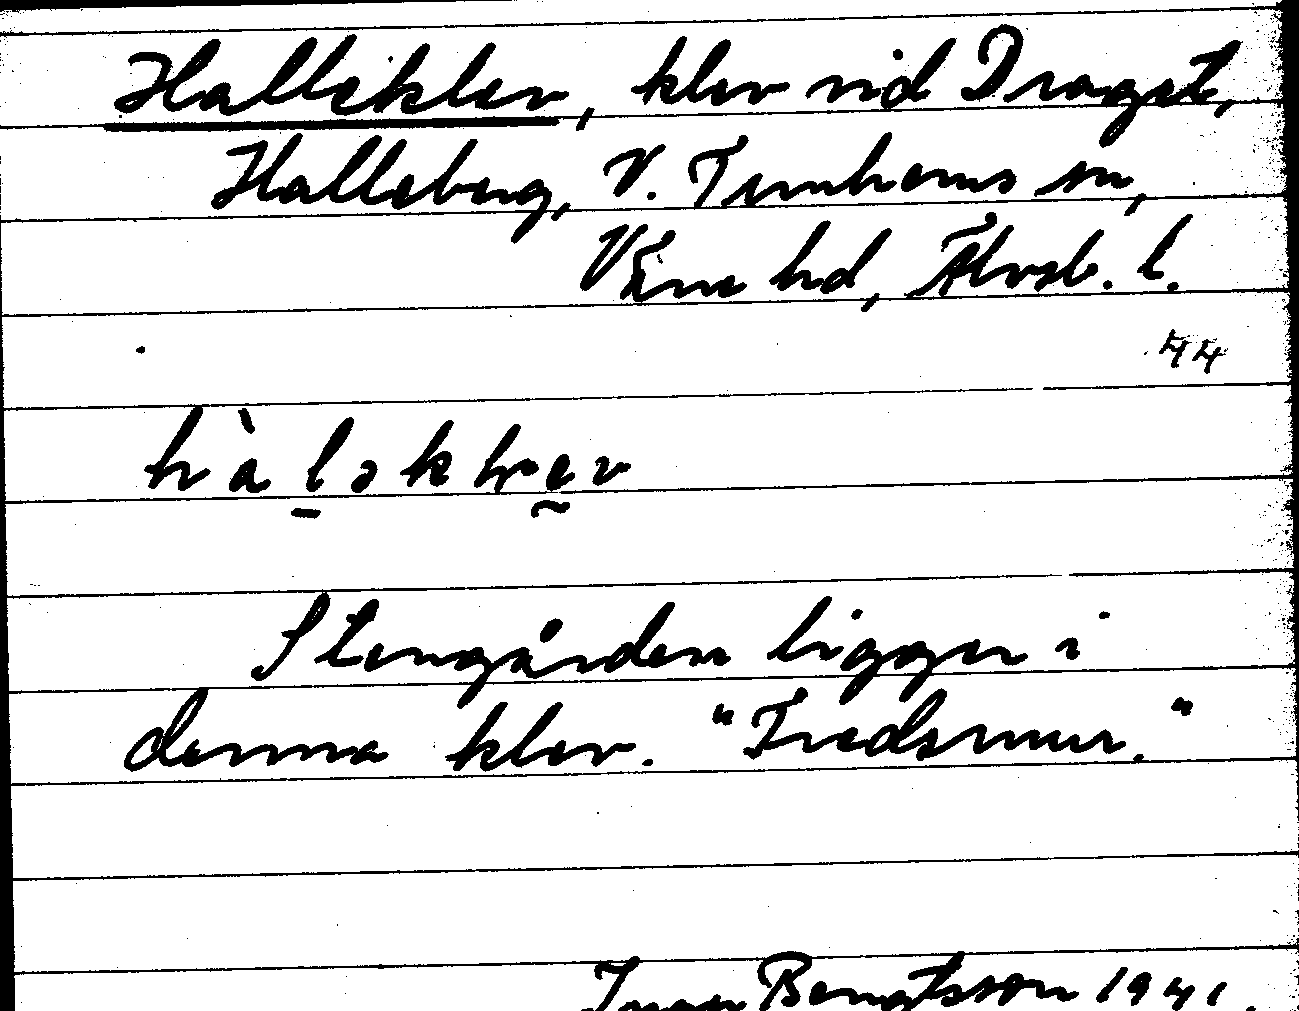 Halleklev, klev vid Draget,
Halleberg, V. Tunhems sn,
Väne hd, Älvsb. l.
44
hàləkləv
Stengården ligger i
denna klev. "Fredsmur."
Ivan Bengtsson 1941.